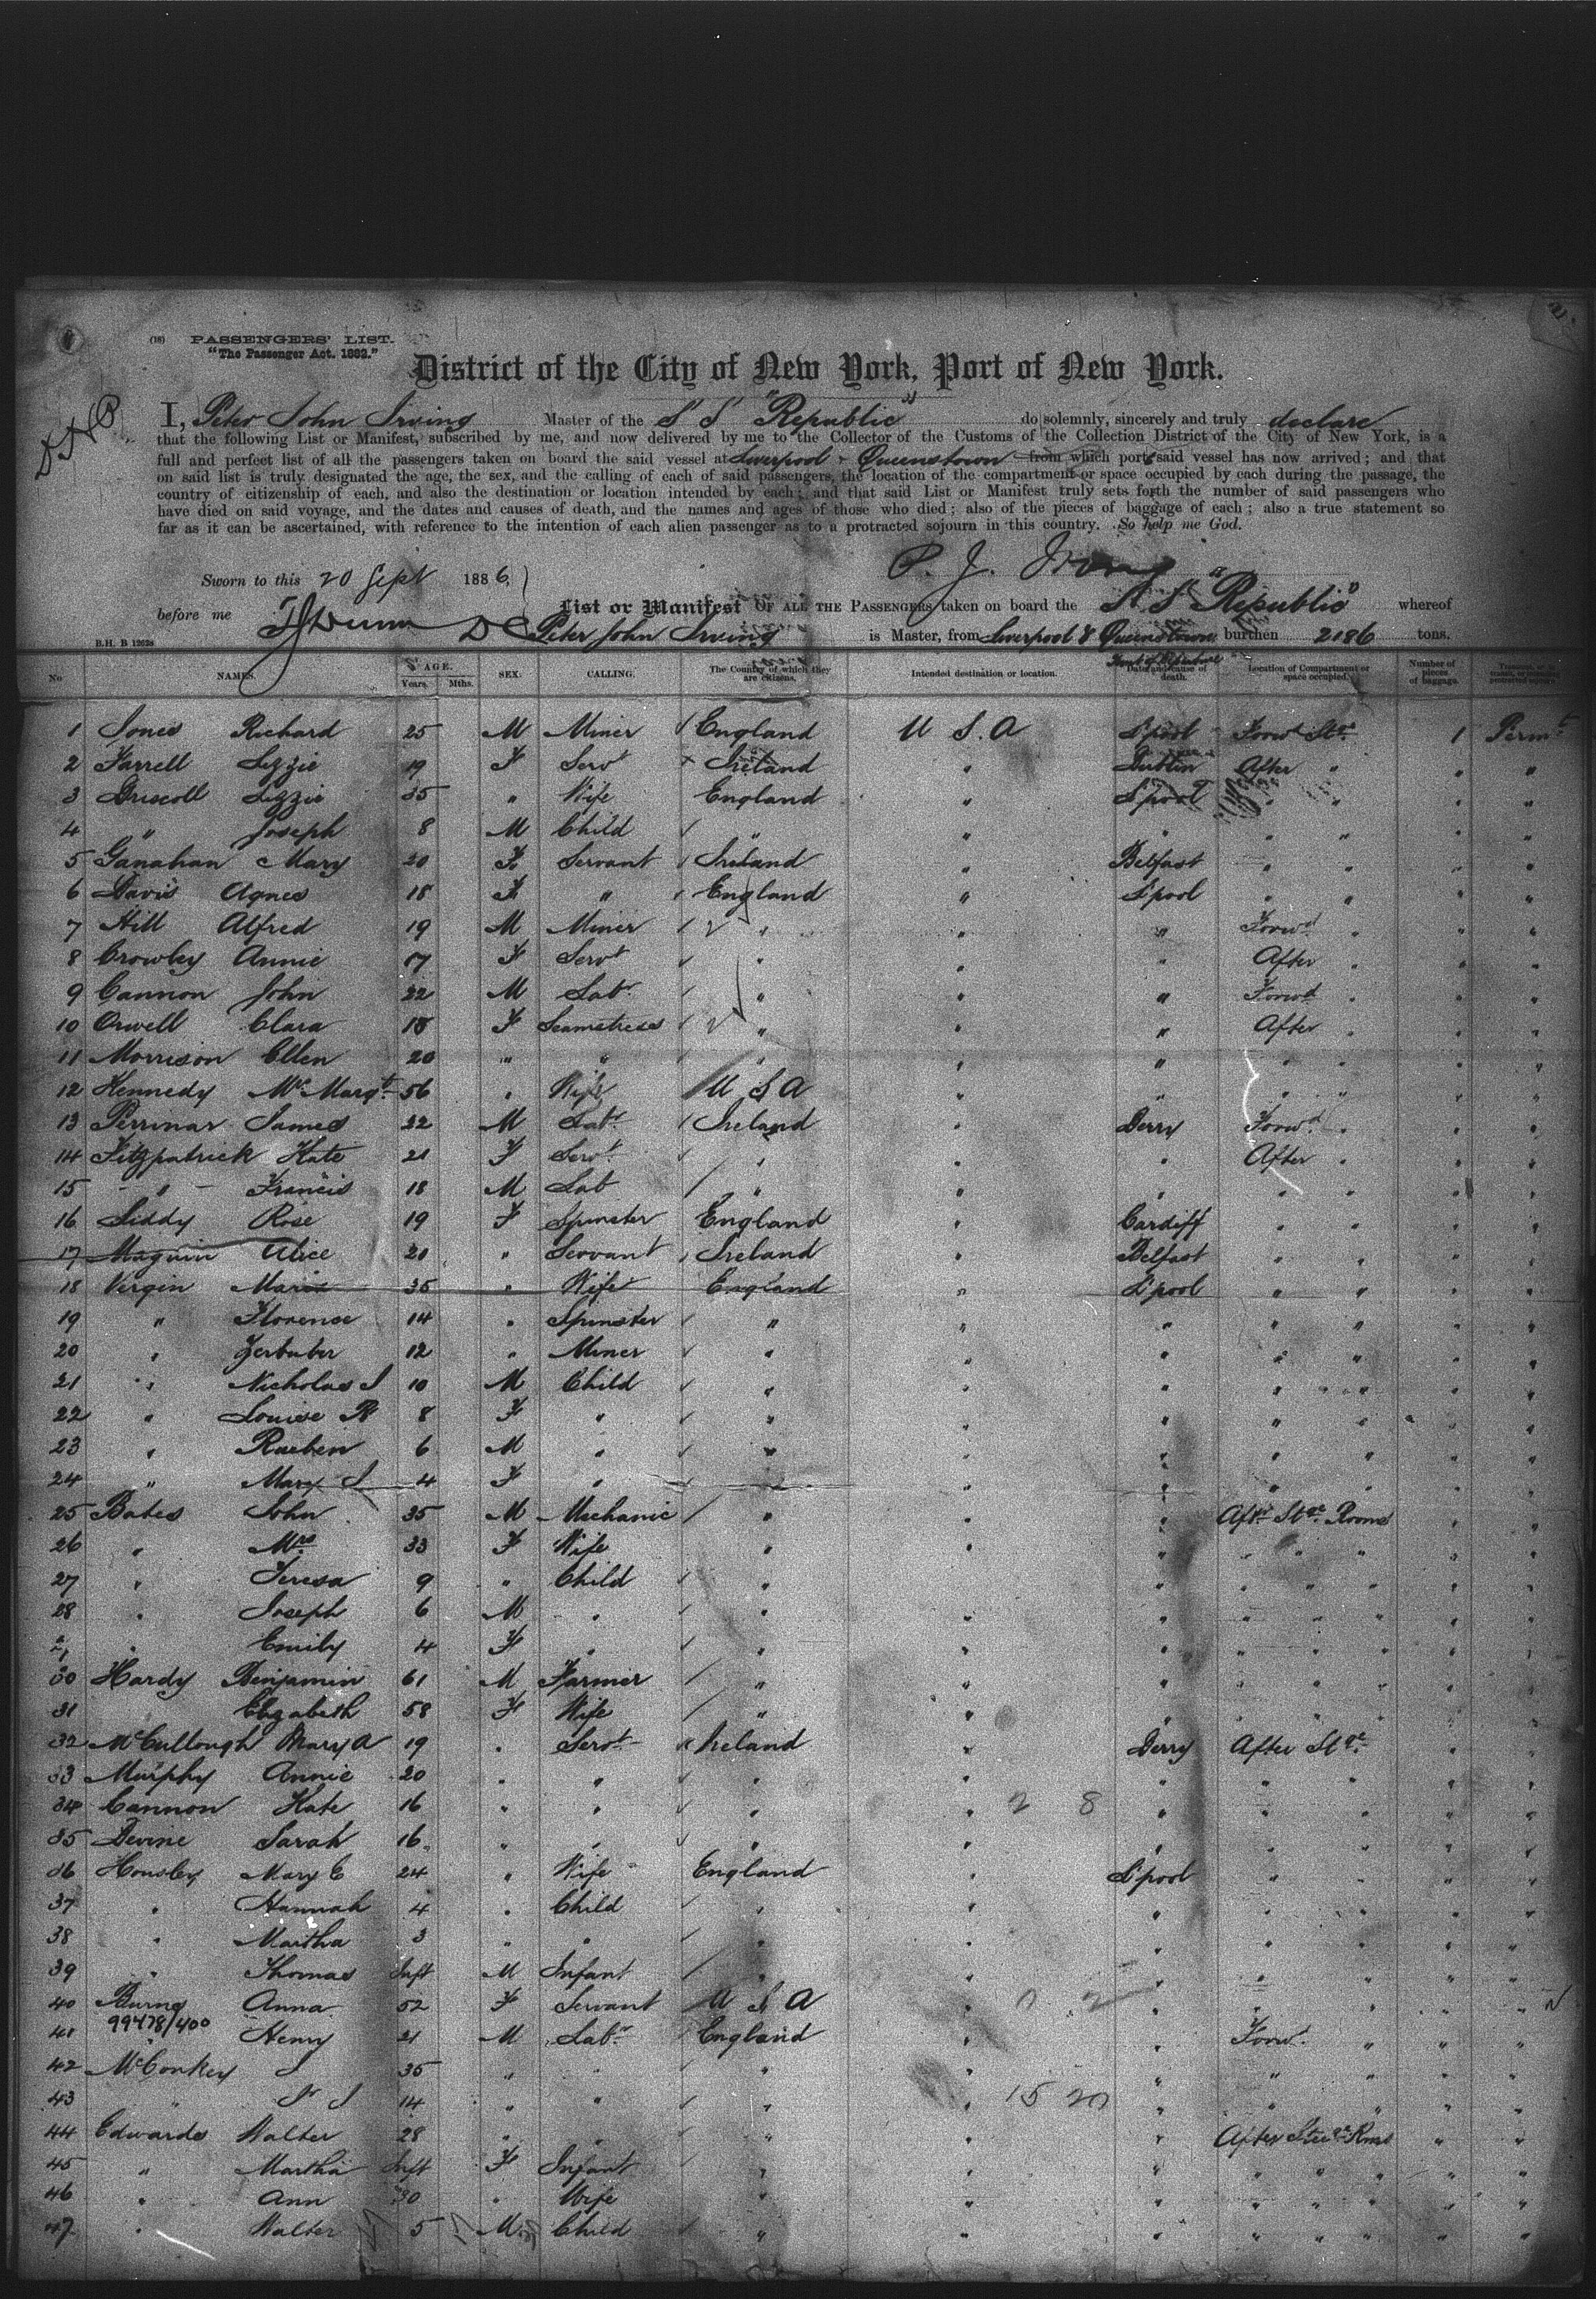 (18) PASSENGERS' LIST.
"The Passenger Act. 1882."
District of the City of New York, Port of New York.
I, Peter John Irving Master of the S S "Republic" do solemnly, sincerely and truly declare
that the following List or Manifest, subscribed by me, and now delivered by me to the Collector of the Customs of the Collection District of the City of New York, is a
full and perfect list of all the passengers taken on board the said vessel at Liverpool & Queenstown from which port said vessel has now arrived; and that
on said list is truly designated the age, the sex, and the calling of each of said passengers, the location of the compartment or space occupied by each during the passage, the
country of citizenship of each, and also the destination or location intended by each; and that said List or Manifest truly sets forth the number of said passengers who
have died on said voyage, and the dates and causes of death, and the names and ages of those who died; also of the pieces of baggage of each; also a true statement so
far as it can be ascertained, with reference to the intention of each alien passenger as to a protracted sojourn in this country. So help me God.
P. J. Irving
Sworn to this 20 Sept 1886,
before me
List or Manifest OF ALL THE PASSENGERS taken on board the S. S "Republic" whereof
B.H. B 12638
Peter John Irving is Master, from Liverpool & Queenstown burthen 2186 tons.
No NAMES. AGE. Years. Mths. SEX. CALLING. The Country of which they are citizens. Intended destination or location. Port of Departure Date and cause of death. Location of Compartment or space occupied. Number of pieces of baggage.
1 Jones Richard 25 M Miner England U S. A L'pool Forwd Stge 1 Permt
2 Farrell Lizzie 19 F Servt Ireland " Dublin After " " "
3 Driscoll Lizzie 35 " Wife England " L'pool " " " "
4 " Joseph 8 M Child " " " " " " "
5 Ganahan Mary 20 F Servant Ireland " Belfast " " " "
6 Davis Agnes 18 F " England " L'pool " " " "
7 Hill Alfred 19 M Miner " " " Forwd " " "
8 Crowley Annie 17 F Servt " " " After " " "
9 Cannon John 22 M Labr " " " Forwd " " "
10 Orwell Clara 18 F Seamstress " " " After " " "
11 Morrison Ellen 20 " " " " " " " " "
12 Kennedy Mrs Margt 56 " Wife U S A " " " " " "
13 Perrinar James 22 M Labr Ireland " Derry Forwd " " "
14 Fitzpatrick Kate 21 F Servt " " " After " " "
15 " Francis 18 M Lab " " " " " " "
16 Liddy Rose 19 F Spinster England " Cardiff " " " "
17 Maguin Alice 20 " Servant Ireland " Belfast " " " "
18 Virgin Maria 35 " Wife England " L'pool " " " "
19 " Florence 14 " Spinster " " " " " " "
20 " 12 " Miner " " " " " " "
21 " Nicholas J 10 M Child " " " " " " "
22 " Louise R 8 F " " " " " " " "
23 " Rueben 6 M " " " " " " " "
24 " Mary J 4 F " " " " " " " "
25 Bates John 35 M Mechanic " " " Aftr Stge Rooms " "
26 " Mrs 33 F Wife " " " " " " " "
27 " Teresa 9 " Child " " " " " " " "
28 " Joseph 6 M " " " " " " " " "
" Emily 4 F " " " " " " " " "
30 Hardy Benjamin 61 M Farmer " " " " " " " "
31 Elizabeth 58 F Wife " " " " " " " "
32 McCullough Mary A 19 " Servt Ireland " Derry After Stge " "
33 Murphy Annie 20 " " " " " " " " "
34 Cannon Kate 16 " " " " 2 8 " " " " "
35 Devine Sarah 16 " " " " " " " " "
36 Housley Mary E 24 " Wife England " L'pool " " " "
37 " Hannah 4 " Child " " " " " " "
38 " Martha 3 " " " " " " " " "
39 " Thomas Inft M Infant " " " " " " "
40 Burns Anna 52 F Servant U S A " " " " " " N
99478/400
41 " Henry 21 M Labr England " " Forw. " " "
42 McConkey J 35 " " " " " " " " "
43 " Jr J 14 " " " " 15 20 " " " " "
44 Edwards Walter 28 " " " " " After Stge Rms " "
45 " Martha Inft F Infant " " " " " " " "
46 " Ann 30 " Wife " " " " " " " "
47 " Walter 5 M. Child " " " " " " " "